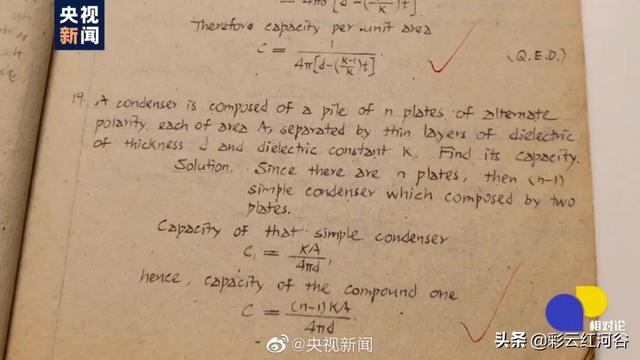 央视新闻
4πD [d-(k-1/k)t]
Therefore capacity per unit area
C = 1/4π[d-(k-1/k)t]
(Q.E.D.)
19. A condenser is composed of a pile of n plates of alternate
polarity each of area A, separated by thin layers of dielectric
of thickness d and dielectric constant K. Find its capacity.
Solution. Since there are n plates, then (n-1)
simple condenser which composed by two
plates.
Capacity of that simple condenser
C₁ = KA/4πd,
hence, capacity of the compound one
C = (n-1)KA/4πd.
相对论
@央视新闻
头条 @彩云红河谷